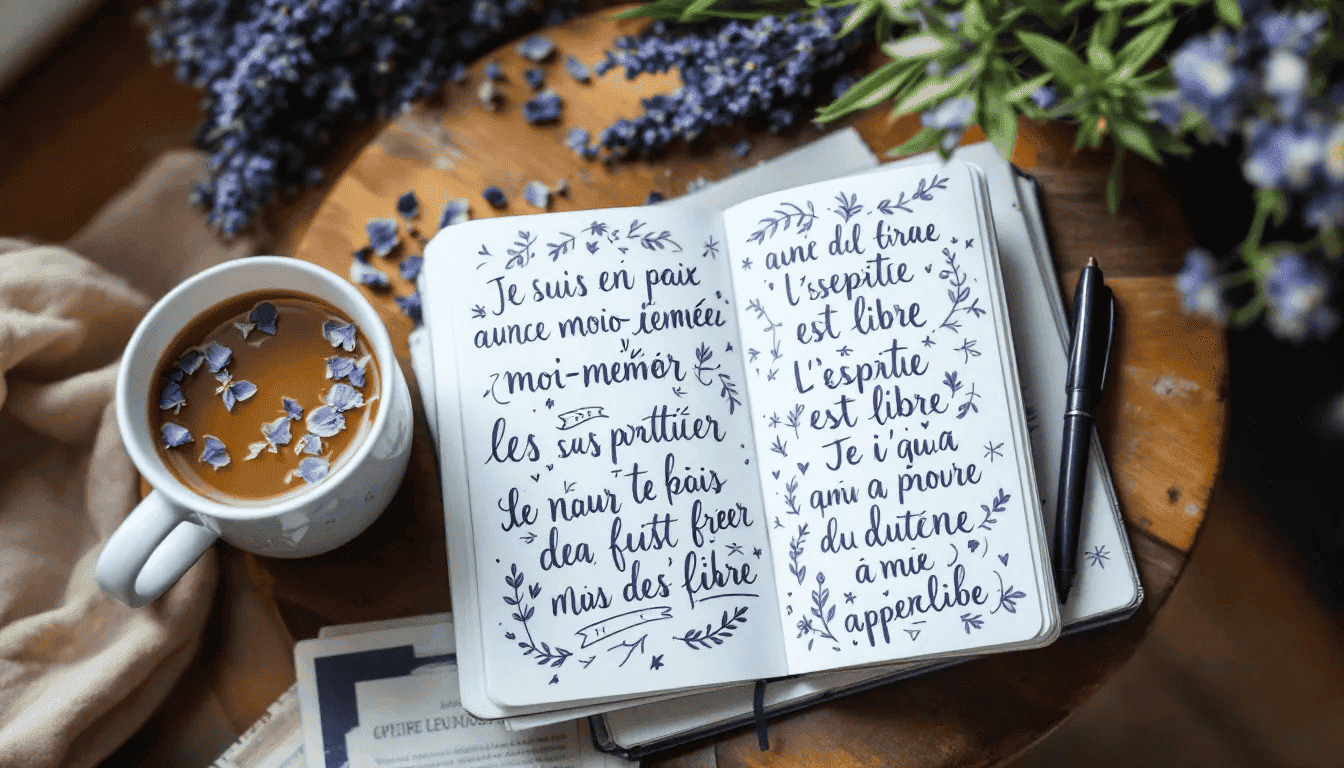 Je suis en paix
aunce moio-ieméei
moi-mémor
les sus porttiier
Le naur te kais
dea fuist freer
mais des' fibre
auric ddl tirue
L'ssepitie
est libre
L''esprtie
est libre
Je i'giua
qniu a proure
du dutene
á mie
apperlibe